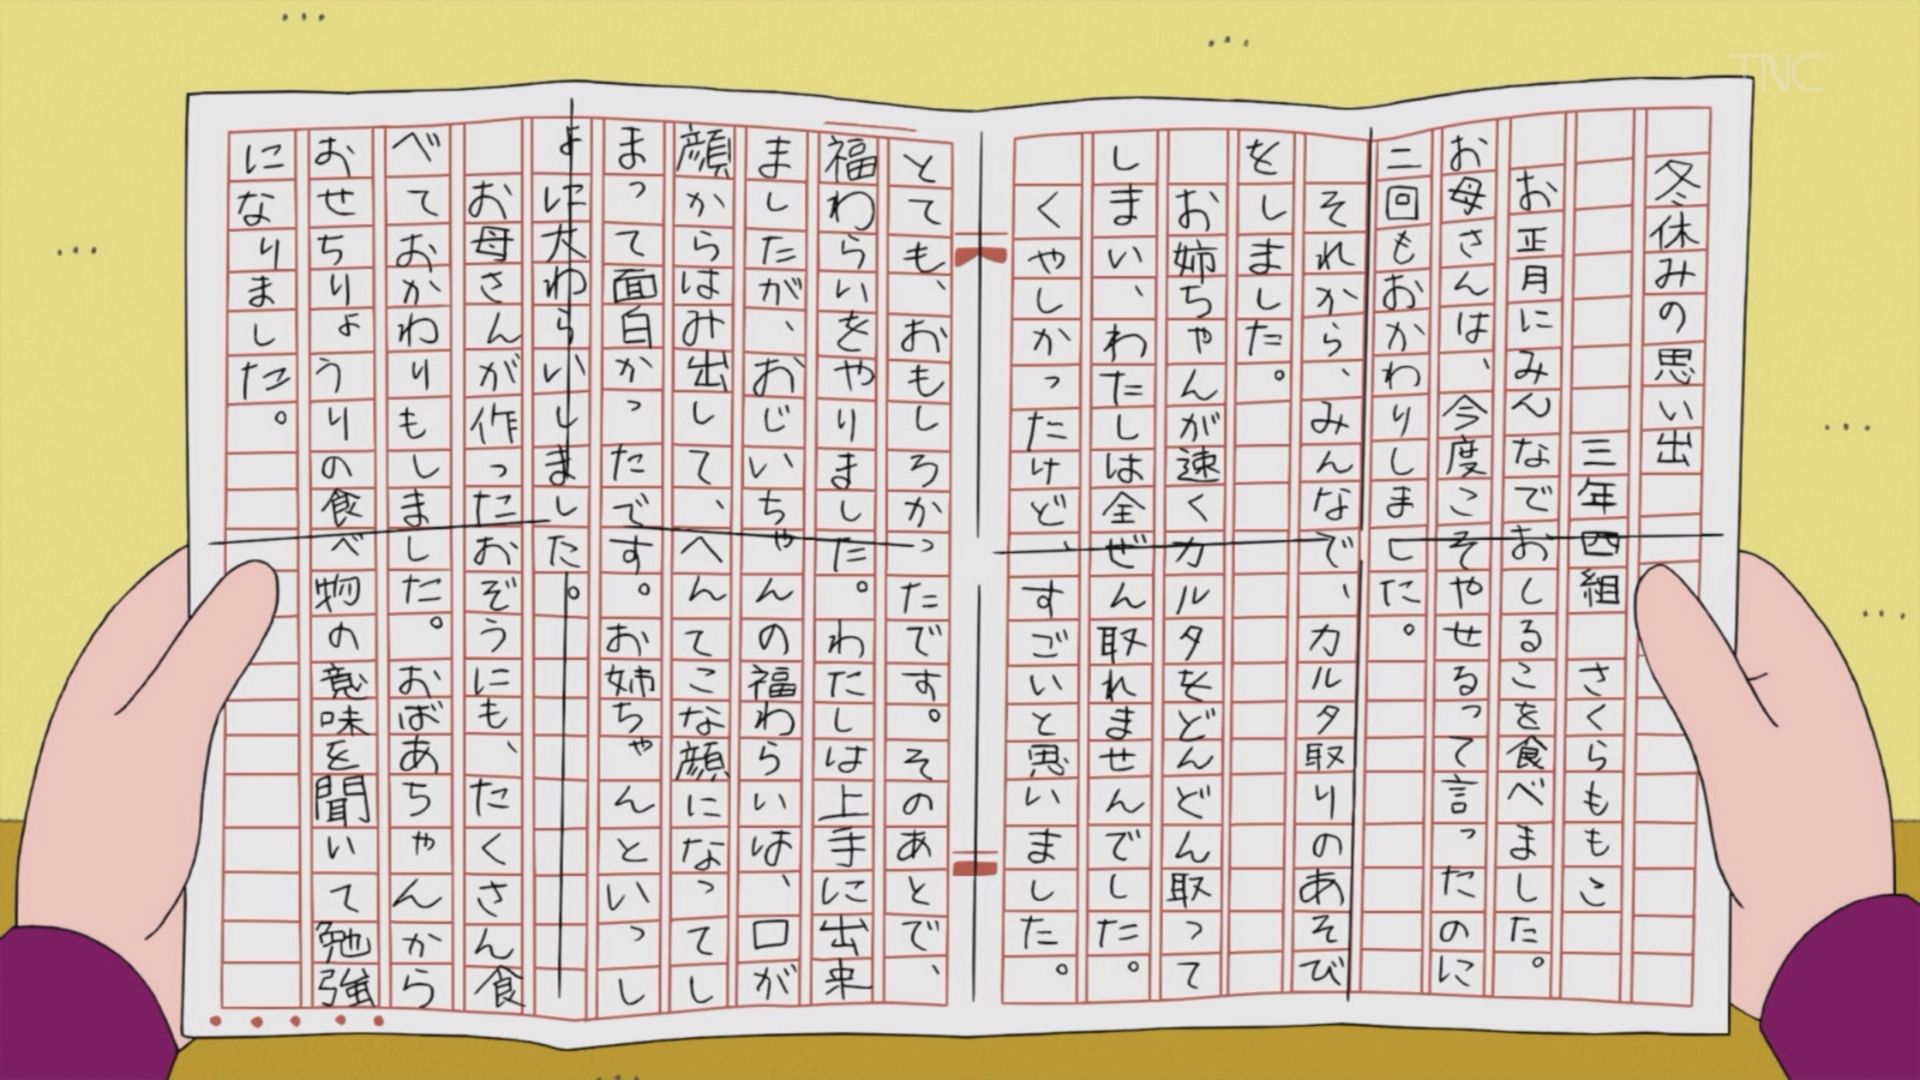 冬休みの思い出
三年四組 さくらももこ
お正月にみんなでおしるこを食べました。
お母さんは、今度こそやせるって言ったのに
二回もおかわりしました。
それから、みんなで、カルタ取りのあそび
をしました。
お姉ちゃんが速くカルタをどんどん取って
しまい、わたしは全ぜん取れませんでした。
くやしかったけど、すごいと思いました。
とても、おもしろかったです。そのあとで、
福わらいをやりました。わたしは上手に出来
ましたが、おじいちゃんの福わらいは、口が
顔からはみ出して、へんてこな顔になってし
まって面白かったです。お姉ちゃんといっし
ょに大わらいしました。
お母さんが作ったおぞうにも、たくさん食
べておかわりもしました。おばあちゃんから
おせちりょうりの食べ物の意味を聞いて勉強
になりました。
TNC